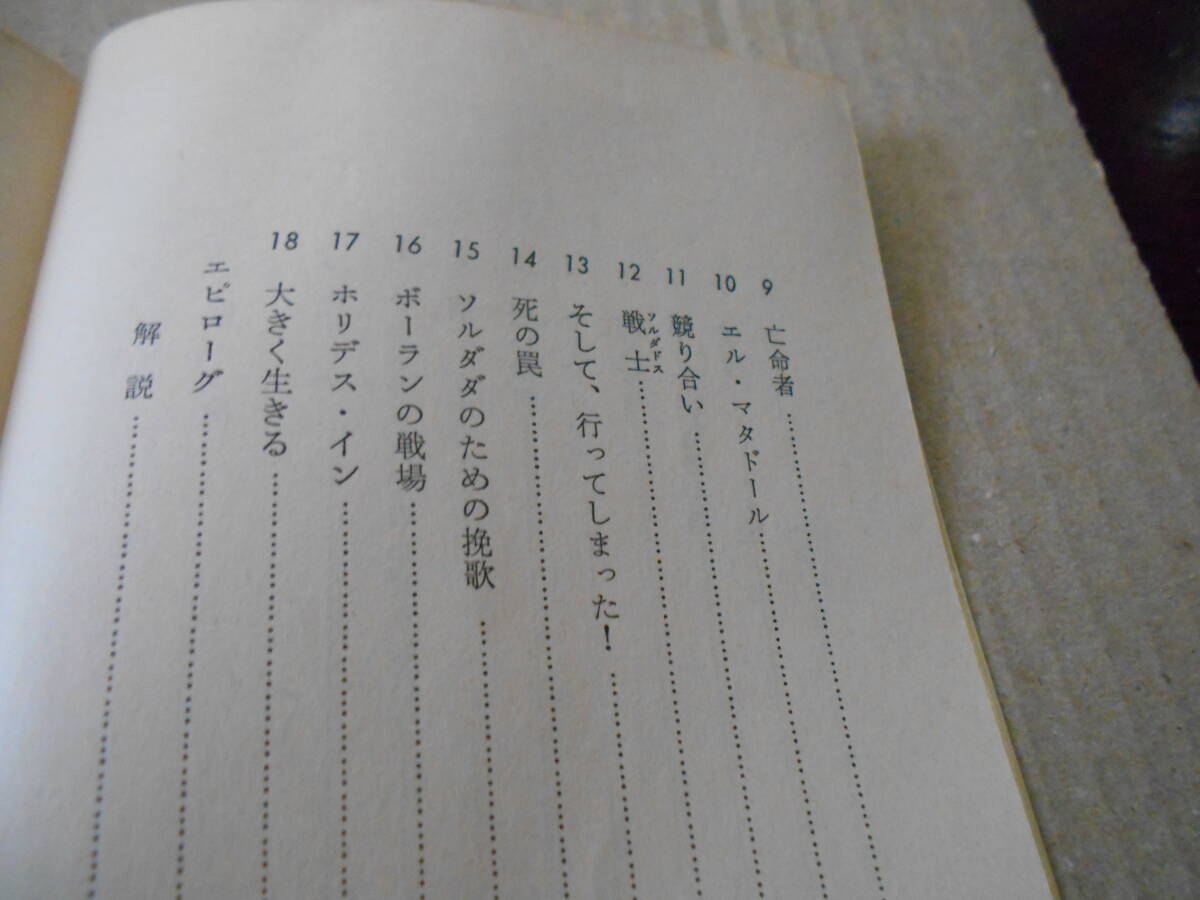 9 亡命者
10 エル・マタドール
11 競り合い
12 戦士 ソルダドス
13 そして、行ってしまった！
14 死の罠
15 ソルダダのための挽歌
16 ボーランの戦場
17 ホリデス・イン
18 大きく生きる
エピローグ
解説